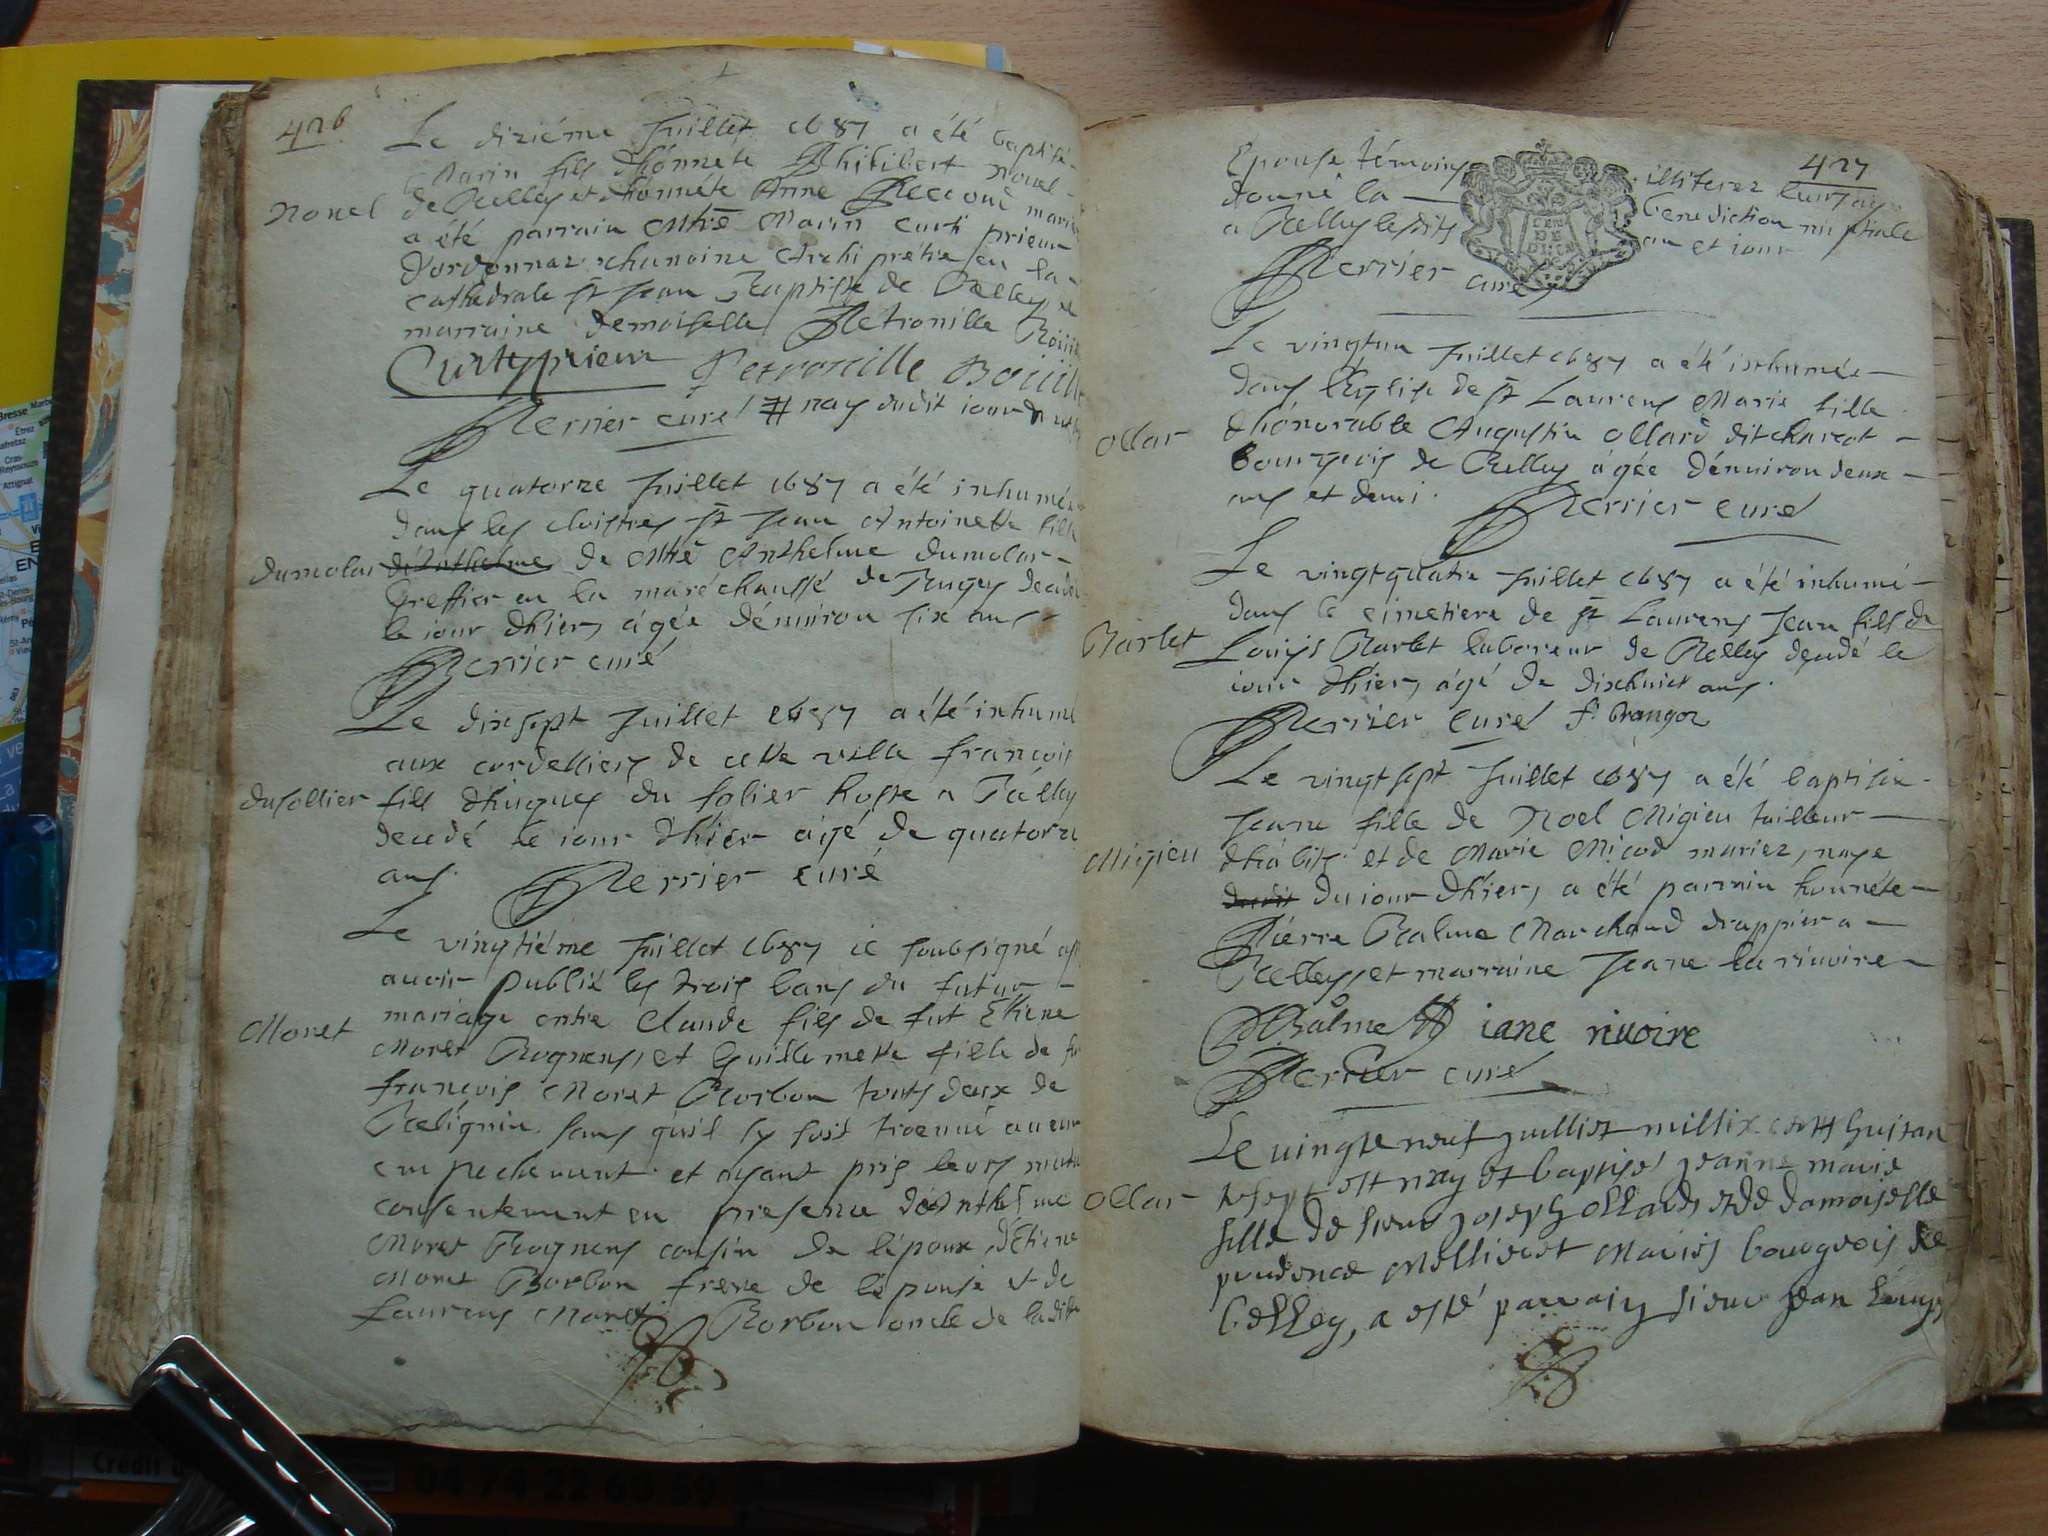 426
Le diziéme Juillet 1687 a été baptisé
Marin fils dhónnete Philibert Nouel
Nouel
de Belley et dhónnéte Anne mariés
a été parrain Mtre Marin Curti prieur
chanoine Archiprétre en la
cathedrale St Jean Baptiste de Belley et
marraine demoiselle Petronille
Curty prieur Petronille Bouill
Perrier curé # nay dudit iour
Le quatorze Juillet 1687 a été inhumée
dans les cloistres St Jean Antoinette fille
Dumolar
de Mtre Anthelme Dumolar
Greffier en la maréchaussé de Bugey decedée
le iour dhier, ágée dénuiron six ans
Perrier curé
Le dixsept Juillet 1687 a été inhumé
aux cordelliers de cette ville francois
dusollier
fils dhugues du solier hoste a Bélley
decedé le iour dhier ágé de quatorze
ans. Perrier curé
Le vingtiéme Juillet 1687 ie soubsigné
auoir publié les trois bans du futur
Moret
mariage entre Claude fils de fut Etiene
Moret Rognens, et Guillemette fille de
francois Moret Borbon touts deux de
Belignin sans qu'il sy soit trouué aucun
empechement et ayant pris leurs
consentement en presence dAnthelme
Moret Rognens cousin de lépoux, dEtiene
Moret Borbon frere de lépouse et de
Laurens Moret Borbon oncle de ladite
427
Epouse témoins illiterez
donné la benediction nuptiale
a Belley lesdits an et iour
Perrier curé
Le vingtun Juillet 1687 a été inhumée
dans l'Eglise de St Laurens Marie fille
Ollar
dhónorable Augustin Ollard dit
bourgeois de Belley ágée dénuiron deux
ans et demi. Perrier curé
Le vingtquatre Juillet 1687 a été inhumé
dans le cimetiere de St Laurens Jean fils de
Barlet
Louys Barlet laboreur de Belley decedé le
iour dhier, ágé de dixhuict ans.
Perrier curé
Le vingtsept Juillet 1687 a été baptisée
Jeane fille de Noel Migieu tailleur
Migieu
dhábits et de Marie Micod mariez, naye
du iour dhier, a été parrain honnéte
Pierre Balme Marchand drappier a
Belley, et marraine Jeane la riuoire
Balme iane riuoire
Perrier curé
Le vingte neuf juillet milsix cent huitan
Ollar
te sept est nay et baptisé jeanne marie
fille de sieur joseph ollard et de damoiselle
prudence Mariés bourgeois de
belley, a esté parrain sieur jean Louys